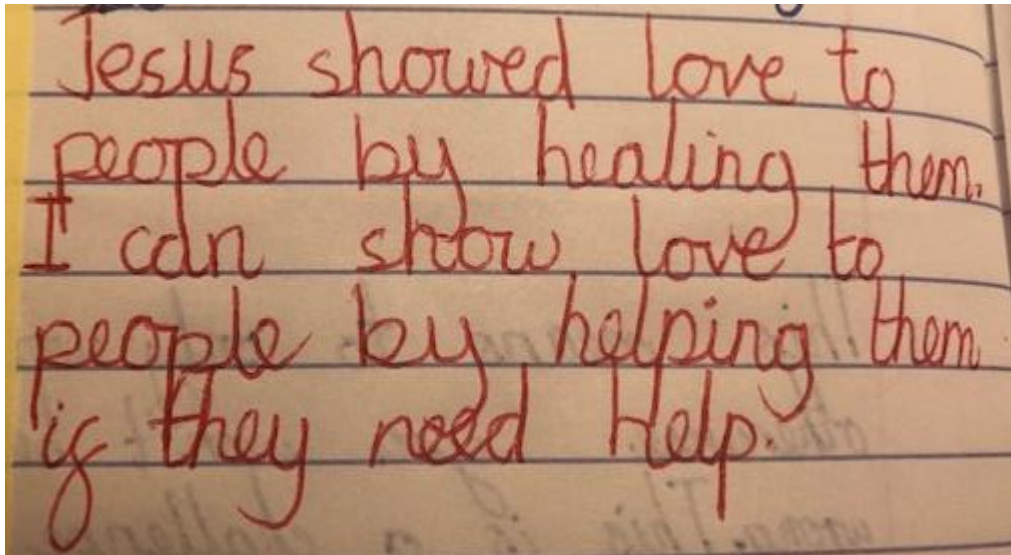 Jesus showed love to
people by healing them.
I can show love to
people by helping them
if they need help.